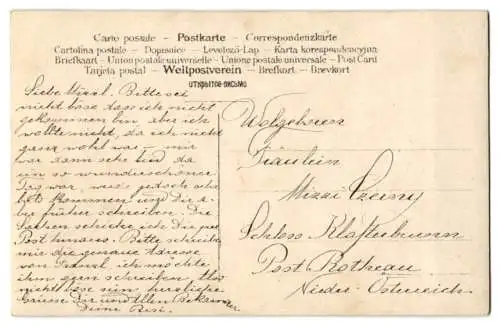 Carte postale – Postkarte – Correspondenzkarte
Cartolina postale – Dopisnice – Levelező-Lap – Karta korespondencyjna
Briefkaart – Union postale universelle – Unione postale universale – Post Card
Tarjeta postal – Weltpostverein – Brefkort – Brevkort
Открытое письмо
Liebe Mizzl. Bitte sei
nicht böse dass ich nicht
gekommen bin aber ich
wollte nicht, da ich nicht
ganz wohl war – mir
war dann sehr leid da
un so wunderschöner
Tag war,
kommen und Dir
früher schreiben. Die
Sachen schicke ich Dir per
Post hinaus. Bitte schreibe
mir die genaue Adresse
von ich möchte
ihm gern schreiben. Also
nicht böse sein, herzliche
Grüsse Dir und Allen Bekannten
Deine Resi.
Wolgeboren
Fräulein
Mizzi Czerny
Schloss Klafterbrunn
Post Rotheau
Nieder-Österreich